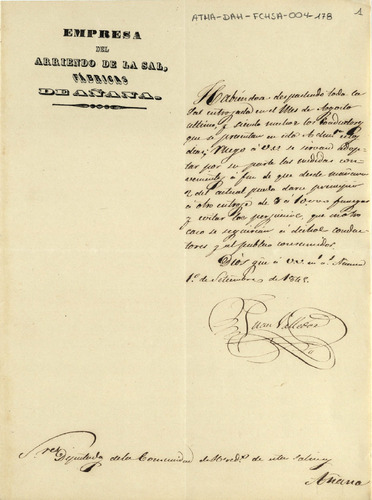 ATHA-DAH-FCHSA-004-178
1
EMPRESA
DEL
ARRIENDO DE LA SAL,
FÁBRICAS
DE AÑANA.
Habiendose despachado toda la
sal entregada en el Mes de Agosto
ultimo, y siendo muchos los conductores
que se presentan en esta
ruego á VV. se sirvan adop-
tar por su parte las medidas con-
venientes á fin de que desde mañana
2 del actual pueda darse principio
á otra entrega de 8 á 10000 fanegas
y evitar los perjuicios, que en otro
caso se seguirian á dichos conduc-
tores y al publico consumidor.
Dios gue á VV. ms. as. Añana
1º de Setiembre de 1848.
Juan
Sres Diputados de la Comunidad de Hereds. de estas Salinas
Añana